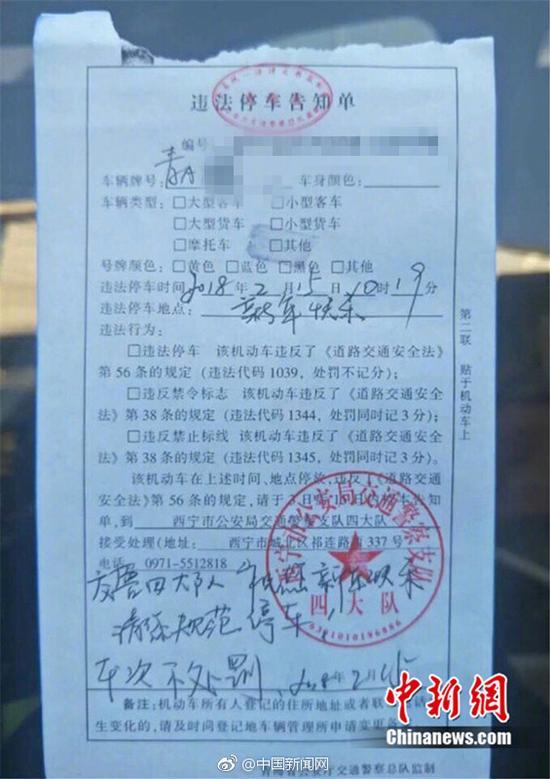 违法停车告知单
编号
车辆牌号：青A 车身颜色：
车辆类型：□大型客车 □小型客车
□大型货车 □小型货车
□摩托车 □其他
号牌颜色：□黄色 □蓝色 □黑色 □其他
违法停车时间：2018年2月15日10时19分
违法停车地点：新年快乐
违法行为：
□违法停车 该机动车违反了《道路交通安全法》
第56条的规定（违法代码1039，处罚不记分）；
□违反禁令标志 该机动车违反了《道路交通安全
法》第38条的规定（违法代码1344，处罚同时记3分）；
□违反禁止标线 该机动车违反了《道路交通安全
法》第38条的规定（违法代码1345，处罚同时记3分）。
该机动车在上述时间、地点停放，违反了《道路交通
安全法》第56条的规定，请于3日 15日内持本告知
单，到 西宁市公安局交通警察支队四大队
接受处理（地址： 西宁市城北区祁连路西337号
电话 0971-5512818
交警四大队 祝您新年快乐
请您规范停车，
本次不处罚 2018年2月15
备注：机动车所有人登记的住所地址或者联系电话
生变化的，请及时向登记地车辆管理所申请变更备
青海省公安厅交通警察总队监制
第二联 贴于机动车上
西宁市公安局交通警察支队
四大队
中新网
Chinanews.com
@中国新闻网